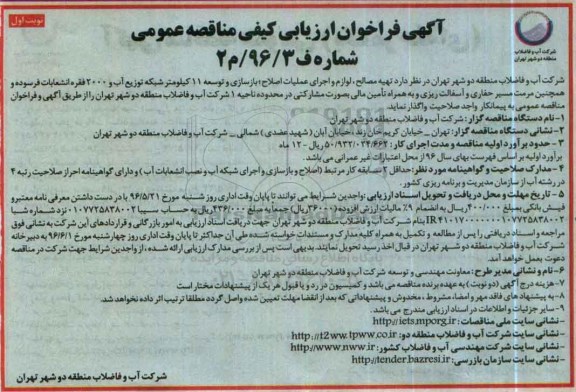 نوبت اول
آگهی فراخوان ارزیابی کیفی مناقصه عمومی
شماره ف ۹۶/۳/م۲
شرکت آب و فاضلاب
منطقه دو شهر تهران
شرکت آب و فاضلاب منطقه دو شهر تهران در نظر دارد تهیه مصالح، لوازم و اجرای عملیات اصلاح، بازسازی و توسعه ۱۱ کیلومتر شبکه توزیع آب و ۲۰۰۰ فقره انشعابات فرسوده و
همچنین مرمت مسیر حفاری و آسفالت ریزی و به همراه تأمین مالی بصورت مشارکتی در محدوده ناحیه ۱ شرکت آب و فاضلاب منطقه دو شهر تهران را از طریق آگهی و فراخوان
مناقصه عمومی به پیمانکار واجد صلاحیت واگذار نماید.
۱- نام دستگاه مناقصه گزار: شرکت آب و فاضلاب منطقه دو شهر تهران
۲- نشانی دستگاه مناقصه گزار: تهران _ خیابان کریم خان زند، خیابان آبان (شهید عضدی) شمالی _ شرکت آب و فاضلاب منطقه دو شهر تهران
۳- حدود برآورد اولیه مناقصه و مدت اجرای کار: ۵۰/۹۳۲/۰۲۴/۶۶۲ ریال - ۱۲ ماه
برآورد اولیه بر اساس فهرست بهای سال ۹۶ از محل اعتبارات غیر عمرانی می باشد.
۴- مدارک صلاحیت و گواهینامه مورد نظر: حداقل ۲ سابقه کار مرتبط (اصلاح و بازسازی و اجرای شبکه آب و نصب انشعابات آب) و دارای گواهینامه احراز صلاحیت رتبه ۴
در رشته آب از سازمان مدیریت و برنامه ریزی کشور.
۵- تاریخ مهلت و محل دریافت و تحویل اسناد ارزیابی: واجدین شرایط می توانند تا پایان وقت اداری روز شنبه مورخ ۹۶/۵/۲۱ با در دست داشتن معرفی نامه معتبر و
فیش بانکی بمبلغ ۴۰۰/۰۰۰ ریال به انضمام ۹٪ مالیات ارزش افزوده (۳۶۰۰۰ ریال) جمعا به مبلغ ۴۳۶/۰۰۰ ریال به حساب سیبا ۰۱۰۷۷۲۵۸۳۸۰۰۲ نزد شماره شبا
بنام شرکت آب و فاضلاب منطقه دو شهر تهران جهت دریافت اسناد ارزیابی به امور بازرگانی و قراردادهای این شرکت به نشانی فوق
مراجعه و اسناد دریافتی را پس از مطالعه و تکمیل به همراه کلیه مدارک و مستندات خواسته شده طی آن حداکثر تا پایان وقت اداری روز چهارشنبه مورخ ۹۶/۶/۱ به دبیرخانه
شرکت آب و فاضلاب منطقه دو شهر تهران در قبال اخذ رسید تحویل نمایند. بدیهی است پس از بررسی مدارک ارزیابی ارائه شده، از واجدین شرایط جهت شرکت در مناقصه
دعوت بعمل خواهد آمد.
۶- نام و نشانی مدیر طرح: معاونت مهندسی و توسعه شرکت آب و فاضلاب منطقه دو شهر تهران
۷- هزینه درج آگهی (دو نوبت) به عهده برنده مناقصه می باشد و کمیسیون در رد و یا قبول هر یک از پیشنهادات مختار است
۸- به پیشنهاد های فاقد مهر و امضاء، مشروط، مخدوش و پیشنهاداتی که بعد از انقضا مهلت تعیین شده واصل گردد مطلقا ترتیب اثر داده نخواهد شد.
۹- سایر جزئیات و اطلاعات در اسناد ارزیابی مندرج می باشد.
- نشانی سایت ملی مناقصات: http://iets.mporg.ir
- نشانی سایت شرکت آب و فاضلاب منطقه دو: http://t2ww.tpww.co.ir
- نشانی سایت شرکت مهندسی آب و فاضلاب کشور: http://www.nww.ir
- نشانی سایت سازمان بازرسی: http://tender.bazresi.ir
شرکت آب و فاضلاب منطقه دو شهر تهران